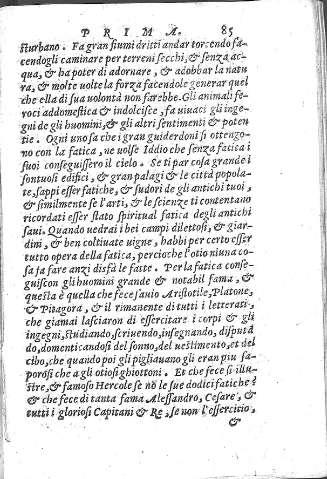 PRIMA. 85
sturbano. Fa gran fiumi dritti andar torcendo fa-
cendogli caminare per terreni secchi, & senza ac-
qua, & ha poter di adornare, & adobbar la natu
ra, & molte uolte la forza facendole generar quel
che ella di sua uolontà non farebbe. Gli animali fe-
roci addomestica & indolcisce, fa uiuaci gli inge-
gni de gli huomini, & gli altri sentimenti & poten
tie. Ogni uno sa che i gran guiderdoni si ottengo-
no con la fatica, ne uolse Iddio che senza fatica i
suoi conseguissero il cielo. Se ti par cosa grande i
sontuosi edifici, & gran palagi & le città popola-
te, sappi esser fatiche, & sudori de gli antichi tuoi,
& similmente se l'arti, & le scienze ti contentano
ricordati esser stato spiritual fatica degli antichi
saui. Quando uedrai i bei campi dilettosi, & giar-
dini, & ben coltiuate uigne, habbi per certo esser
tutto opera della fatica, percioche l'otio niuna co-
sa fa fare anzi disfà le fatte. Per la fatica conse-
guiscon gli huomini grande & notabil fama, &
questa è quella che fece sauio Aristotile, Platone,
& Pitagora, & il rimanente di tutti i letterati,
che giamai lasciaron di essercitare i corpi & gli
ingegni, studiando, scriuendo, insegnando, disputã
do, domenticandosi del sonno, del uestimento, et del
cibo, che quando poi gli pigliauano gli eran piu sa-
porosi che a gli otiosi ghiottoni. Et che fece sì illu-
stre, & famoso Hercole se nõ le sue dodici fatiche?
& che fece di tanta fama Alessandro, Cesare, &
tutti i gloriosi Capitani & Re, se non l'essercitio,
&